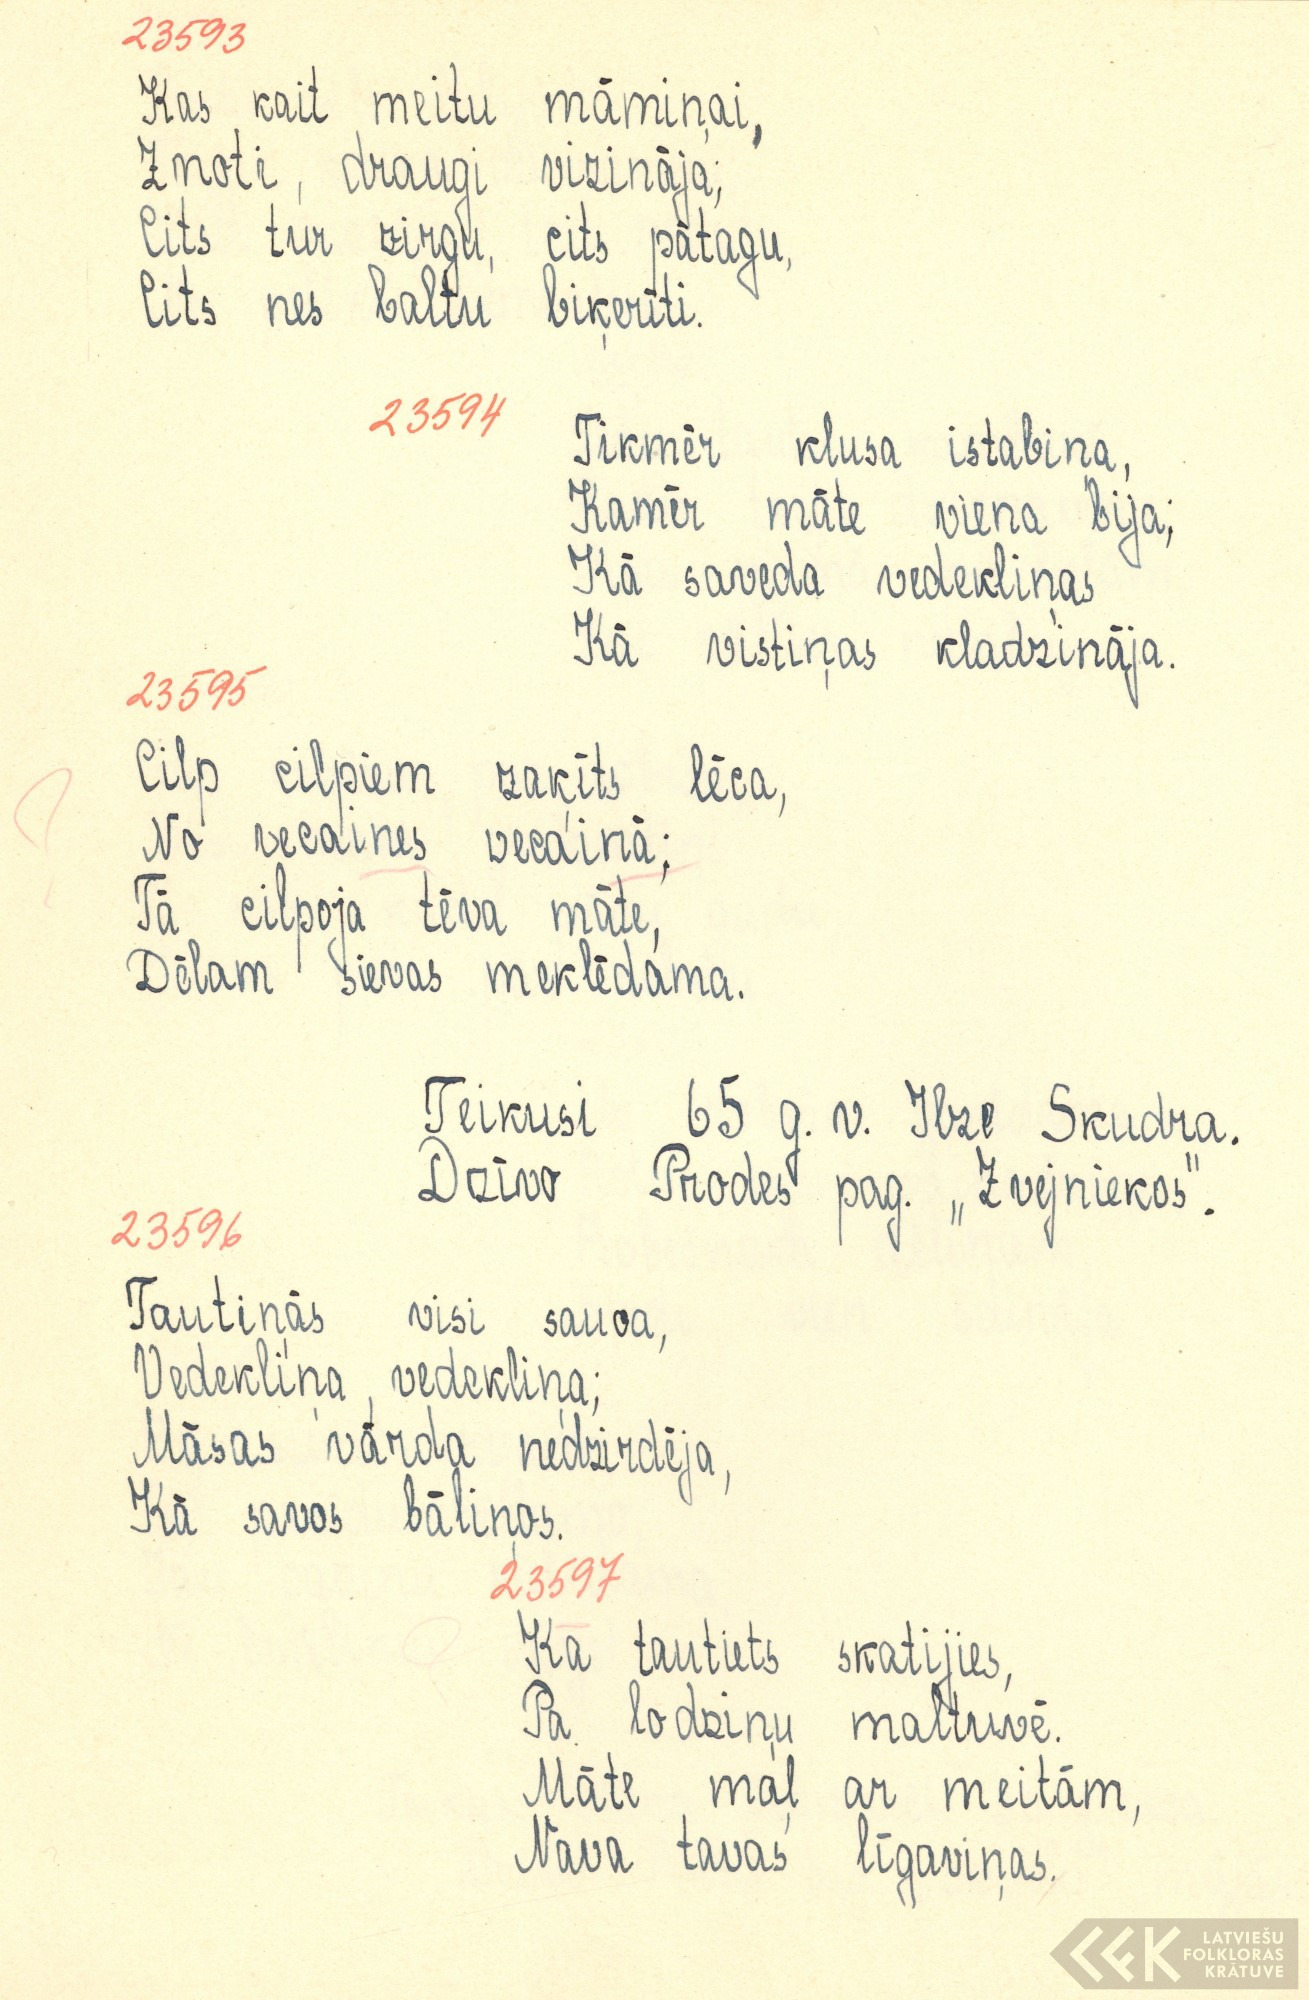 23593
Kas kait meitu māmiņai,
Znoti, draugi vizināja;
Cits tur zirgu, cits pātagu,
Cits nes baltu biķerīti.
23594
Tikmēr klusa istabiņa,
Kamēr māte viena bija;
Kā saveda vedekliņas
Kā vistiņas kladzināja.
23595
Cilp cilpiem zaķīts lēca,
No vecaines vecainā;
Tā cilpoja tēva māte,
Dēlam sievas meklēdama.
Teikusi 65 g. v. Ilze Skudra.
Dzīvo Prodes pag. „Zvejniekos".
23596
Tautiņās visi sauca,
Vedekliņa, vedekliņa;
Māsas vārda nedzirdēja,
Kā savos bāliņos.
23597
Ka tautiets skatijies,
Pa lodziņu maltuvē.
Māte maļ ar meitām,
Nava tavas līgaviņas.
LATVIEŠU
FOLKLORAS
KRĀTUVE